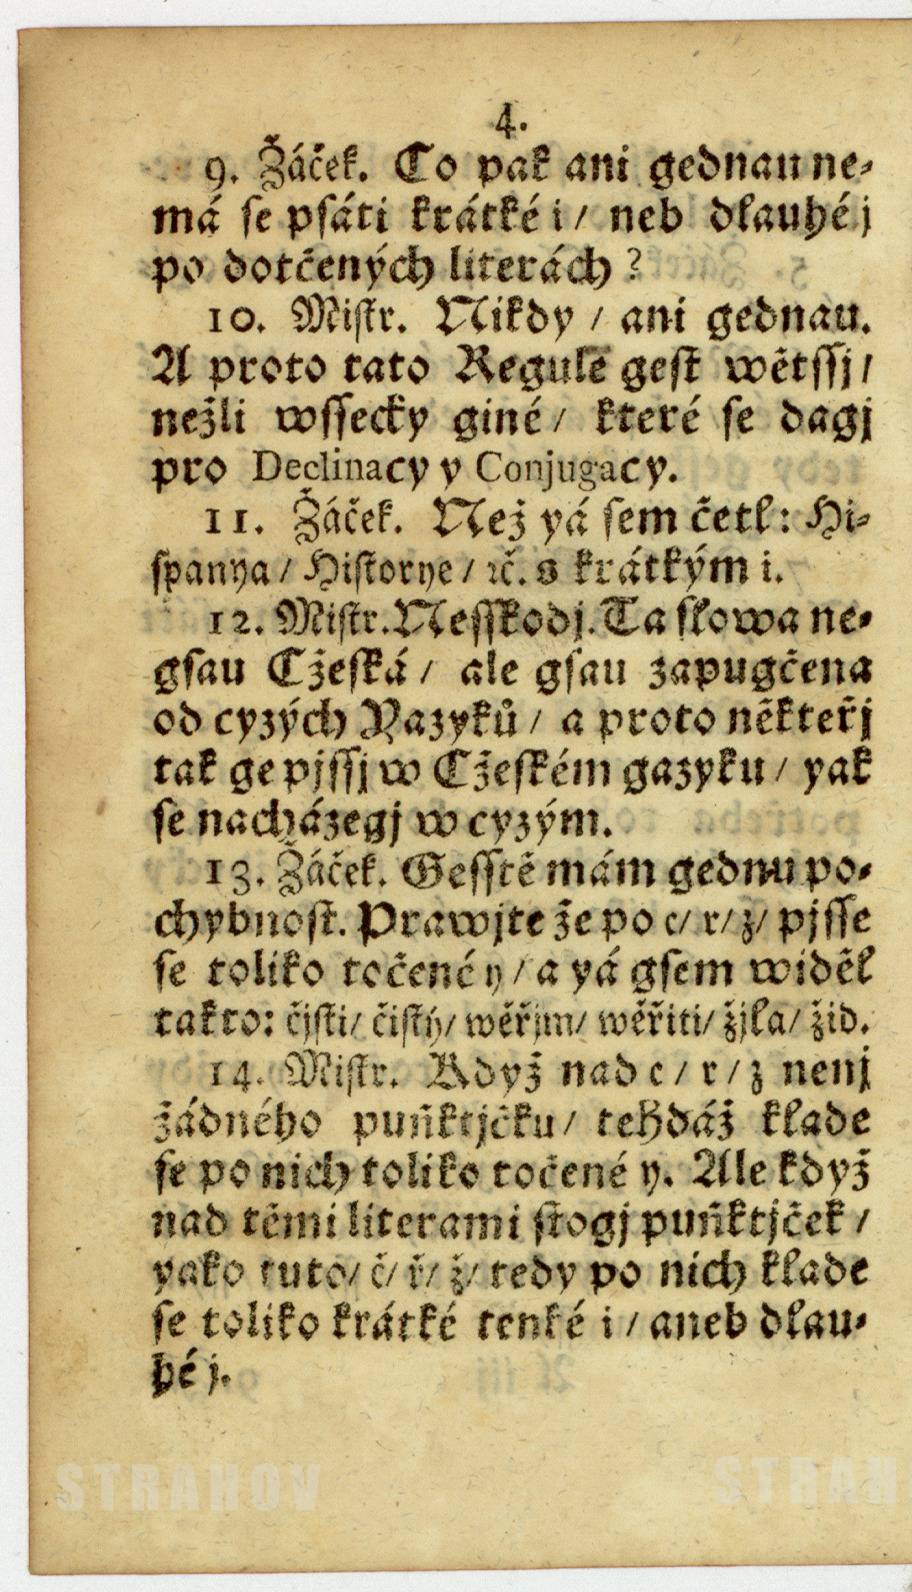 4.
9. Žáček. Co pak ani gednau ne-
má se psáti krátké i / neb dlauhé j
po dotčených literách ?
10. Mistr. Nikdy / ani gednau.
A proto tato Regule gest wětssj /
nežli wssecky giné / které se dagj
pro Declinacy y Conjugacy.
11. Žáček. Než yá sem četl: Hi-
spanya / Historye / ꝛč. s krátkým i.
12. Mistr. Nesskodj. Ta slowa ne-
gsau Cžeská / ale gsau zapugčena
od cyzých Yazyků / a proto někteřj
tak ge pjssj w Cžeském gazyku / yak
se nacházegj w cyzým.
13. Žáček. Gesstě mám gednu po-
chybnost. Prawjte že po c / r / z / pjsse
se toliko točené y / a yá gsem widěl
takto: čjsti / čistý / wěřjm / wěřiti / žjla / žid.
14. Mistr. Když nad c / r / z nenj
žádného puňktjčku / tehdáž klade
se po nich toliko točené y. Ale když
nad těmi literami stogj puňktjček /
yako tuto / č / ř / ž / tedy po nich klade
se toliko krátké tenké i / aneb dlau-
hé j.
STRAHOV STRAH